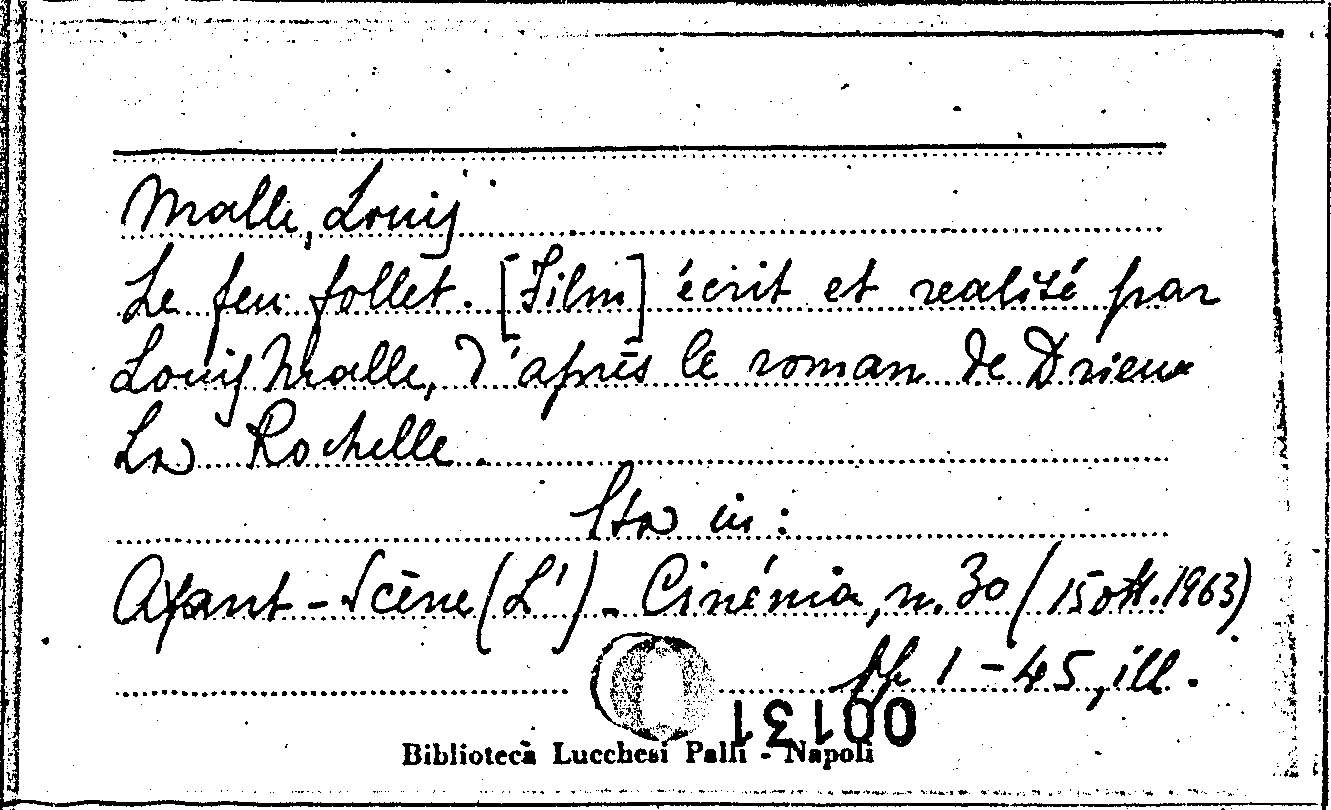 Malle, Louis
Le feu follet. [Film] écrit et realisé par
Louis Malle, d'après le roman de Drieu
La Rochelle.
Sta in:
Avant-Scène (L') - Cinéma, n. 30 (15 ott. 1963)
pp. 1-45, ill.
00131
Biblioteca Lucchesi Palli - Napoli